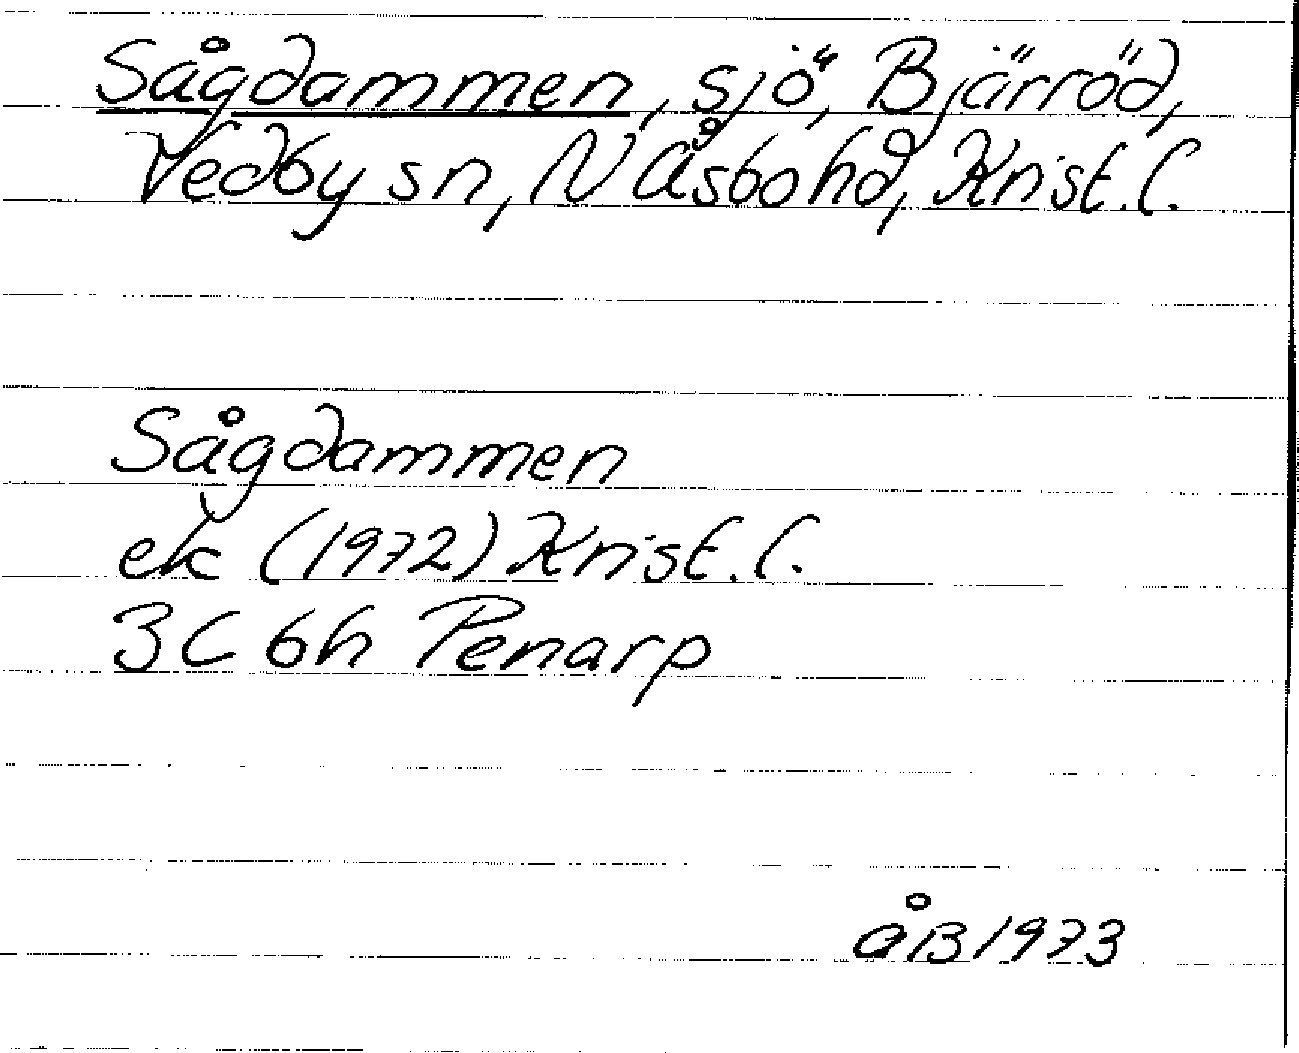 Sågdammen, sjö, Bjärröd,
Vedby sn, N Åsbo hd, Krist. l.
Sågdammen
ek (1972) Krist. l.
3C 6h Penarp
åB 1973